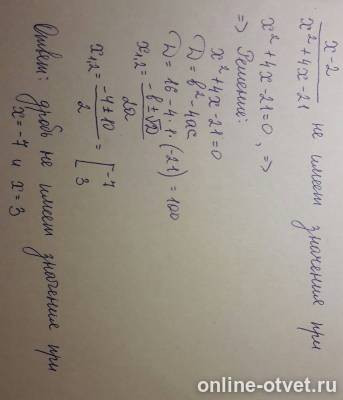 x-2 / x² + 4x - 21 не имеет значения при
x² + 4x - 21 = 0, =>
=> Решение:
x² + 4x - 21 = 0
D = b² - 4ac
D = 16 - 4·1·(-21) = 100
x1,2 = -b ± √D / 2a
x1,2 = -4 ± 10 / 2 = [ -7 3
Ответ: дробь не имеет значения при
x = -7 и x = 3
online-otvet.ru